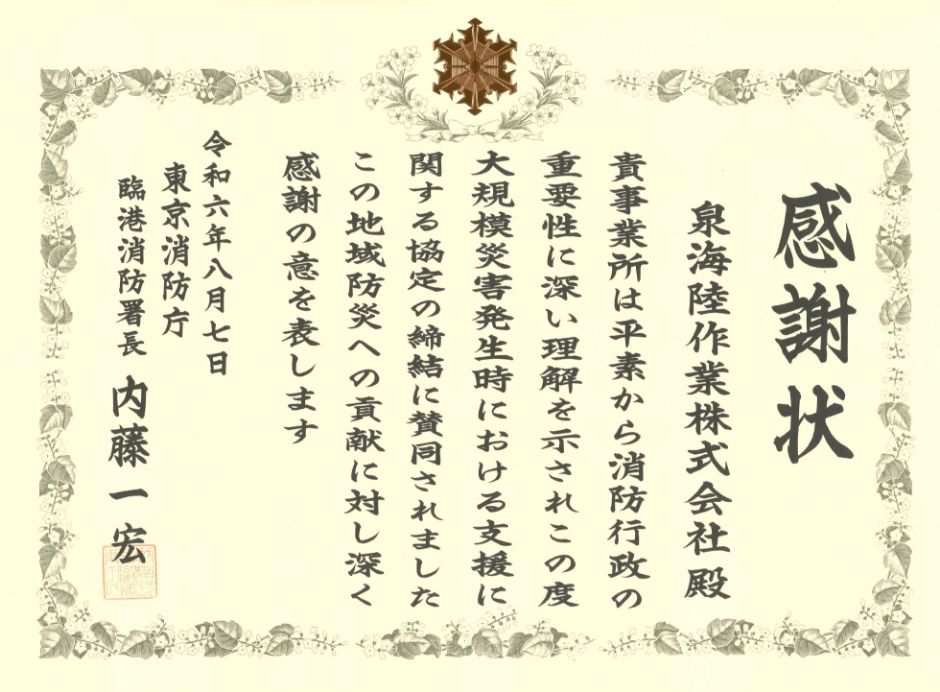 感謝状
泉海陸作業株式会社 殿
貴事業所は平素から消防行政の
重要性に深い理解を示されこの度
大規模災害発生時における支援に
関する協定の締結に賛同されました
この地域防災への貢献に対し深く
感謝の意を表します
令和六年八月七日
東京消防庁
臨港消防署長 内藤一宏